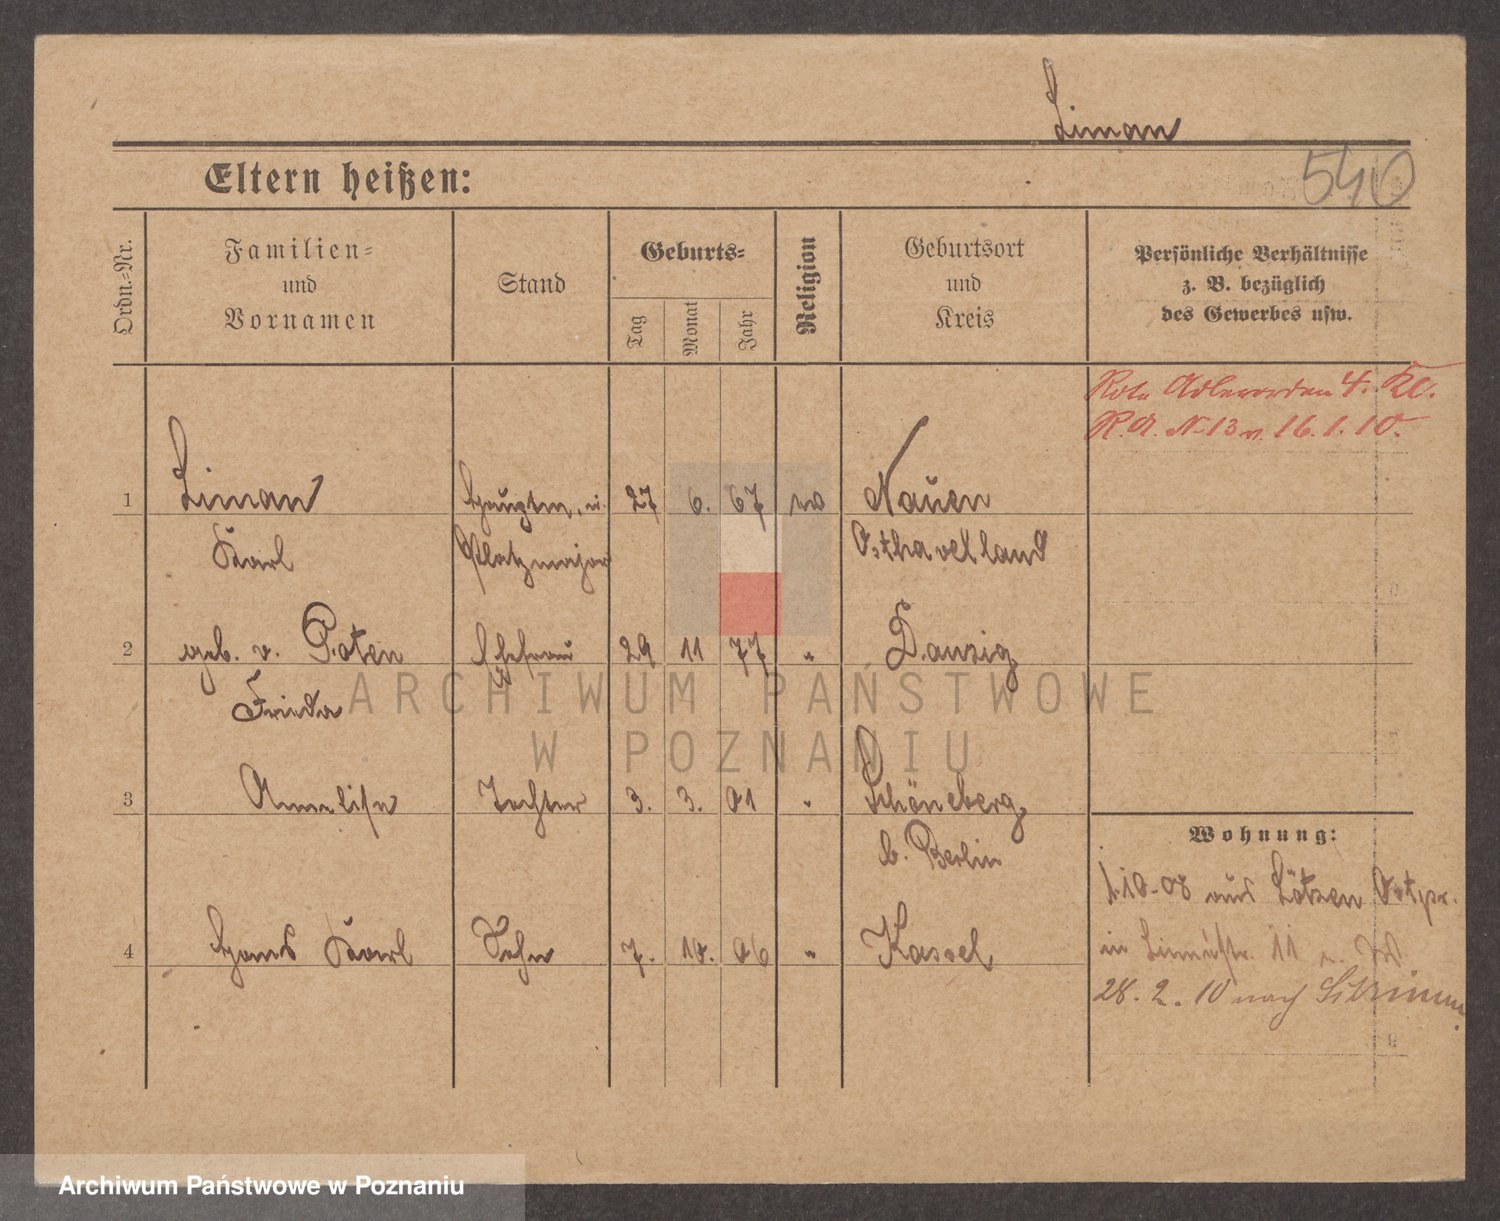 Liman
540
Eltern heißen:
Ordn.-Nr.
Familien-
und
Vornamen
Stand
Geburts-
Tag
Monat
Jahr
Religion
Geburtsort
und
Kreis
Persönliche Verhältnisse
z. B. bezüglich
des Gewerbes usw.
Rote Adlerorden 4. Kl.
R.A. No 13 v. 16.1.10.
1 Liman Hauptm. u. 27 6. 67 Nauen
Karl Platzmajor Osthavelland
2 geb. v. Poten Ehefrau 29 11 77 " Danzig
Frieda
3 Annelise Tochter 3. 3. 01 " Schöneberg
b. Berlin
Wohnung:
1.10.08 aus Lötzen Ostpr.
4 Hans Karl Sohn 7. 10. 06 " Kassel
in 11
28. 2. 10 nach
ARCHIWUM PAŃSTWOWE
W POZNANIU
Archiwum Państwowe w Poznaniu